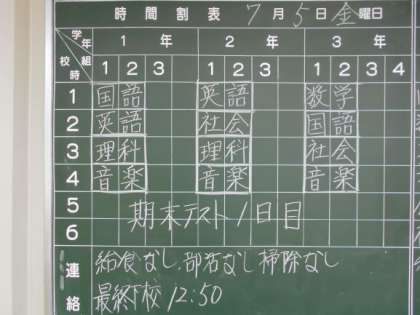 時間割表 7月5日金曜日
学年 1年 2年 3年
校時 組 1 2 3 1 2 3 1 2 3 4
1 国語 英語 数学
2 英語 社会 国語
3 理科 理科 社会
4 音楽 音楽 音楽
5 期末テスト1日目
6
連絡 給食なし、部活なし掃除なし
最終下校 12:50